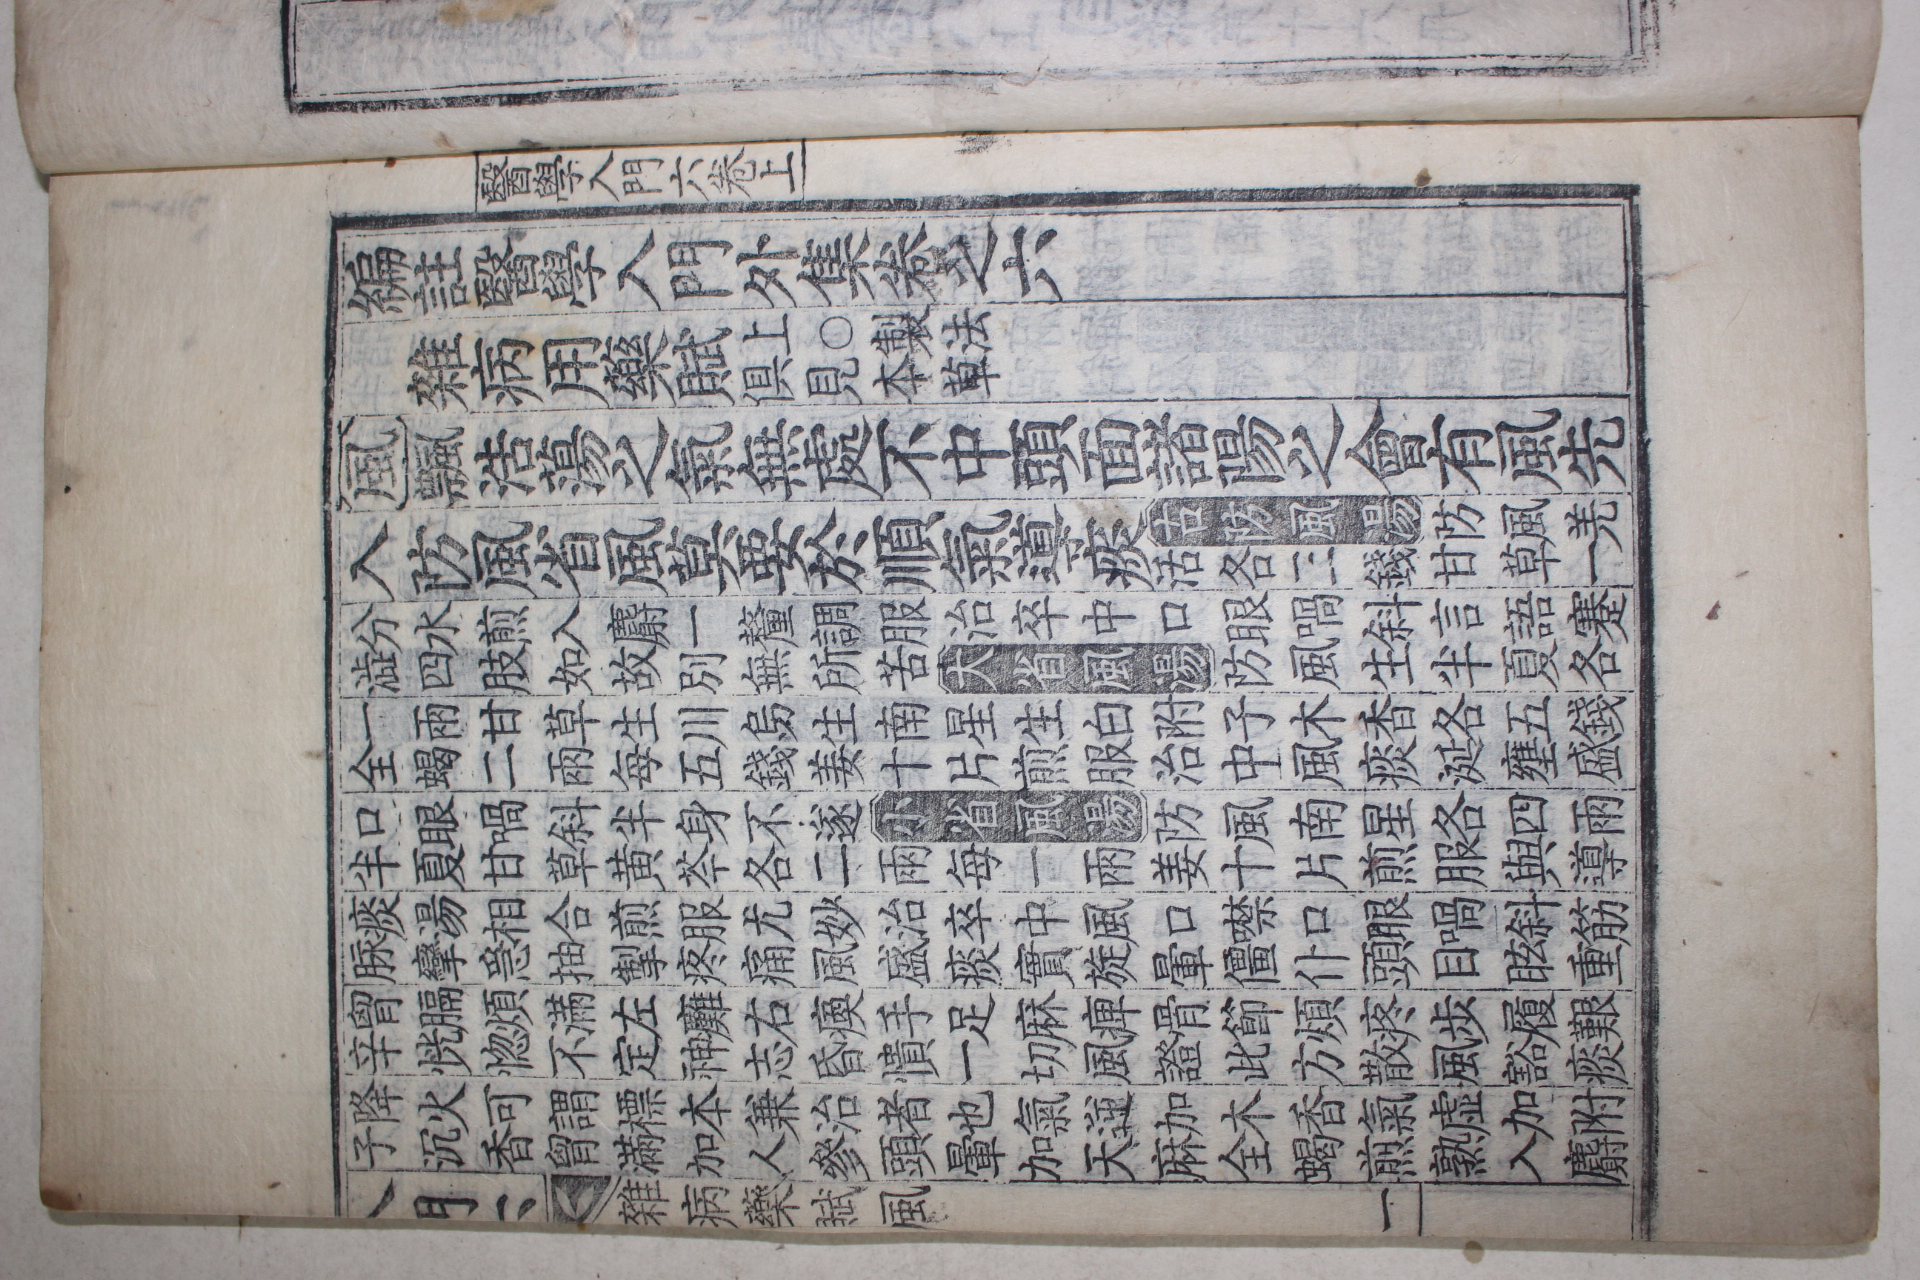 醫學入門六卷上
編註醫學入門外集卷之六
雜病用藥賦上○製法
俱見本草
風飄浩蕩之氣無處不中頭面諸陽之會有風先
入防風省風莫要於順氣導痰古防風湯防風羌
活各三錢甘草一
分水煎入麝一釐調服治卒中口眼喎斜言語蹇
澁四肢如故別無所苦大省風湯防風生半夏各
一兩甘草生川烏生南星生白附子木香各五錢
全蝎二兩每五錢姜十片煎服治中風痰涎壅盛
口眼喎斜半身不遂小省風湯防風南星各四兩
半夏甘草黃芩各二兩每一兩姜十片煎服與導
痰湯相合煎服尤妙治卒中風口噤口眼喎斜筋
脉攣急抽掣疼痛風盛痰實旋暈僵仆頭目眩重
胷膈煩滿左癱右瘓手足麻痺骨節煩疼步履艱
辛恍惚不定神志昏憒一切風證此方散風豁痰
降火可謂標本兼治者也氣逆加木香氣虛加附
子沉香胷滿加人參頭暈加天麻全蝎煎熟入麝
入門六 雜病藥賦風 一